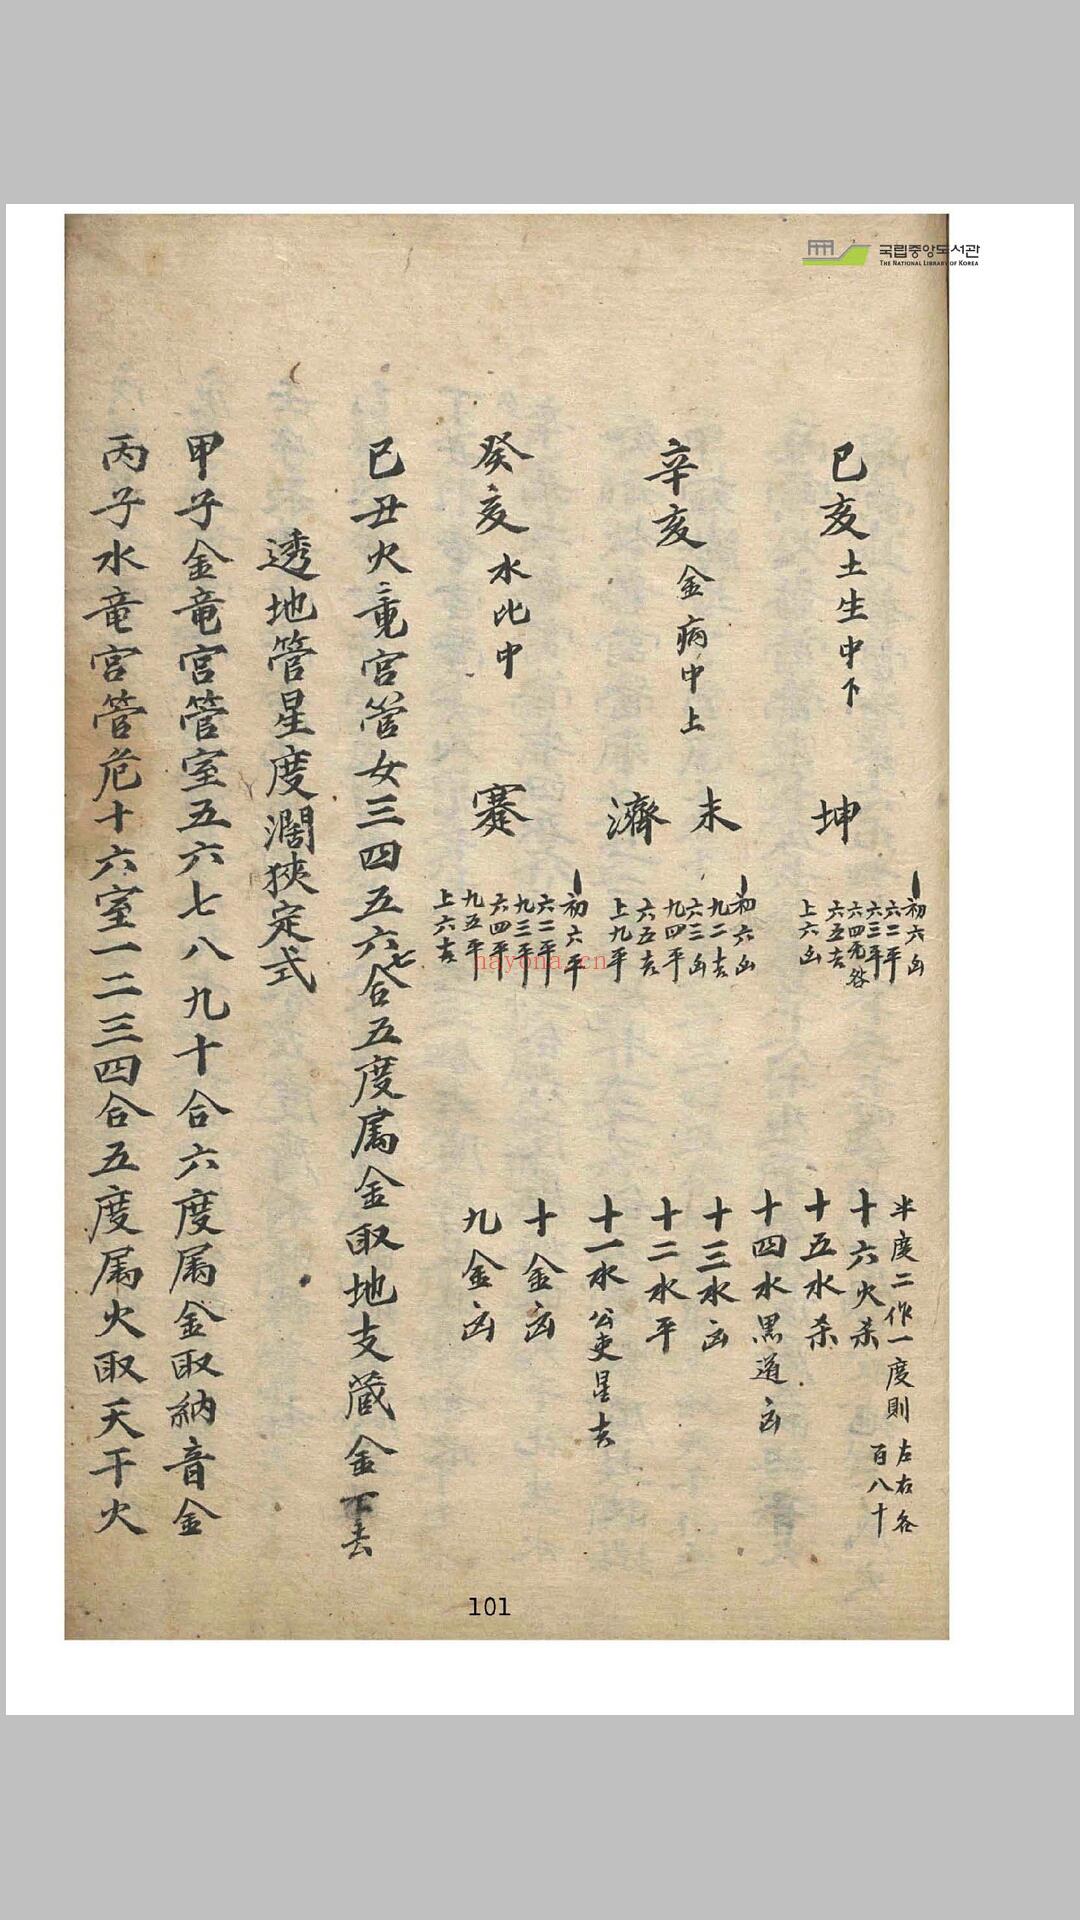 국립중앙도서관
THE NATIONAL LIBRARY OF KOREA
己亥土生中下
坤
初六凶
六二平
六三平
六四无咎
六五吉
上六凶
半度二作一度則左右各
百八十
十六火杀
十五水杀
十四水黑道凶
十三水凶
十二水平
十一水公吏星吉
十金凶
九金凶
辛亥金病中上
未
濟
初六凶
九二吉
六三凶
九四平
六五吉
上九平
癸亥水比中
蹇
初六平
六二平
九三平
六四平
九五平
上六吉
己丑火竜宮管女三四五六七合五度属金取地支蔵金下去
透地管星度濶狹定式
甲子金竜宮管室五六七八九十合六度属金取納音金
丙子水竜宮管危十六室一二三四合五度属火取天干火
hayona.cn
101